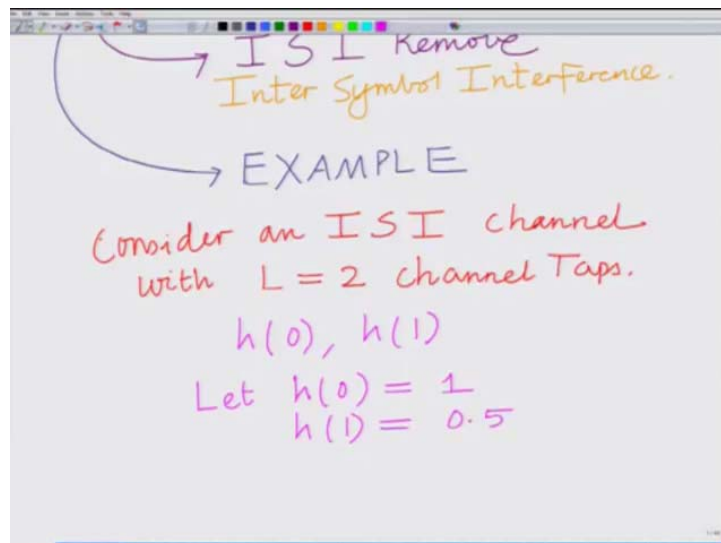 ISI Remove
Inter Symbol Interference.
EXAMPLE
Consider an ISI channel
with L = 2 channel Taps.
h(0), h(1)
Let h(0) = 1
h(1) = 0.5